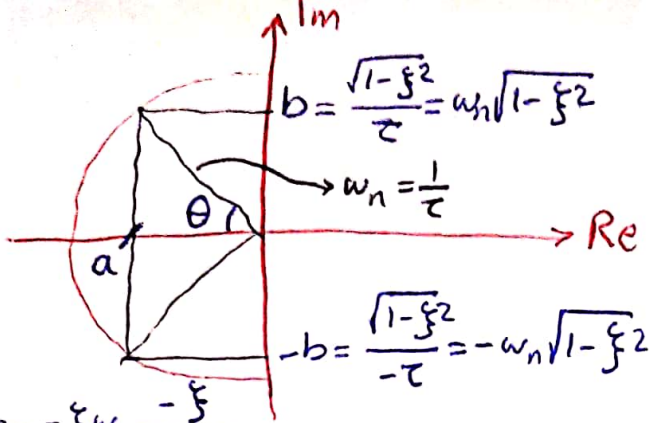 Im
b = √(1-ξ²)/τ = ωn√(1-ξ²)
ωn = 1/τ
θ
Re
a
-b = √(1-ξ²)/-τ = -ωn√(1-ξ²)
-ξ